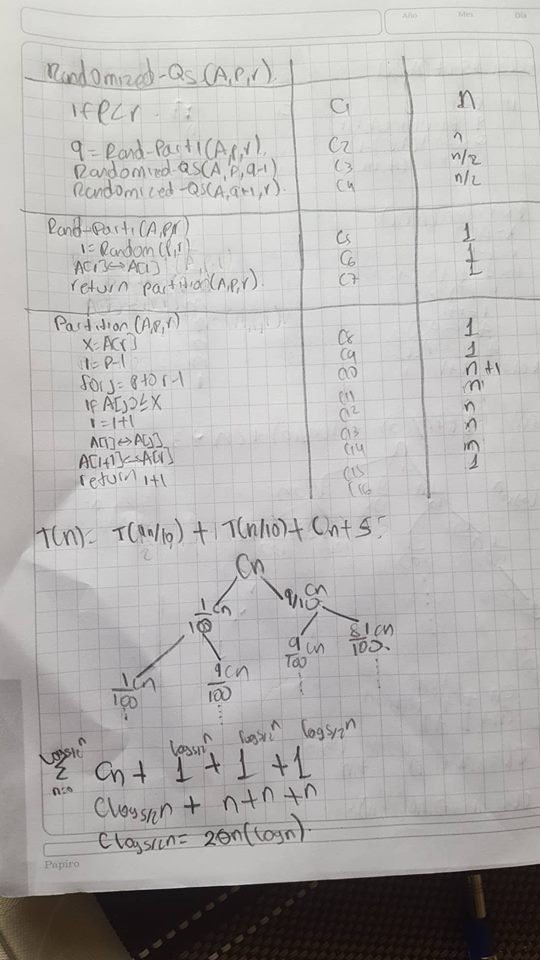 Año Mes Día
Randomized-QS(A,P,r)
if P<r C1 n
q = Rand-Parti(A,p,r). C2 n
Randomized-QS(A,P,q-1) C3 n/2
Randomized-QS(A,q+1,r). C4 n/2
Rand-Parti(A,P,r)
i=Random(P,r) C5 1
A[i]↔A[i] C6 1
return partition(A,p,r). C7 1
Partition(A,p,r)
X=A[r] C8 1
i=P-1 C9 1
for j= to r-1 C10 n+1
if A[j]≤X C11 n
i=i+1 C12 n
A[i]↔A[j] C13 n
A[i+1]↔A[r] C14
return i+1 C15 1
C16
T(n)= T(9n/10) + T(n/10) + Cn+5
Cn
1/10 Cn 9/10 Cn
1/100 Cn 9/100 Cn 9/100 Cn 81/100 Cn
log5/2 n log5/2 n log5/2 n log5/2 n
Σ Cn + 1 + 1 + 1
n=0
C log5/2 n + n+n+n
C log5/2 n = 2θn(logn).
Papiro